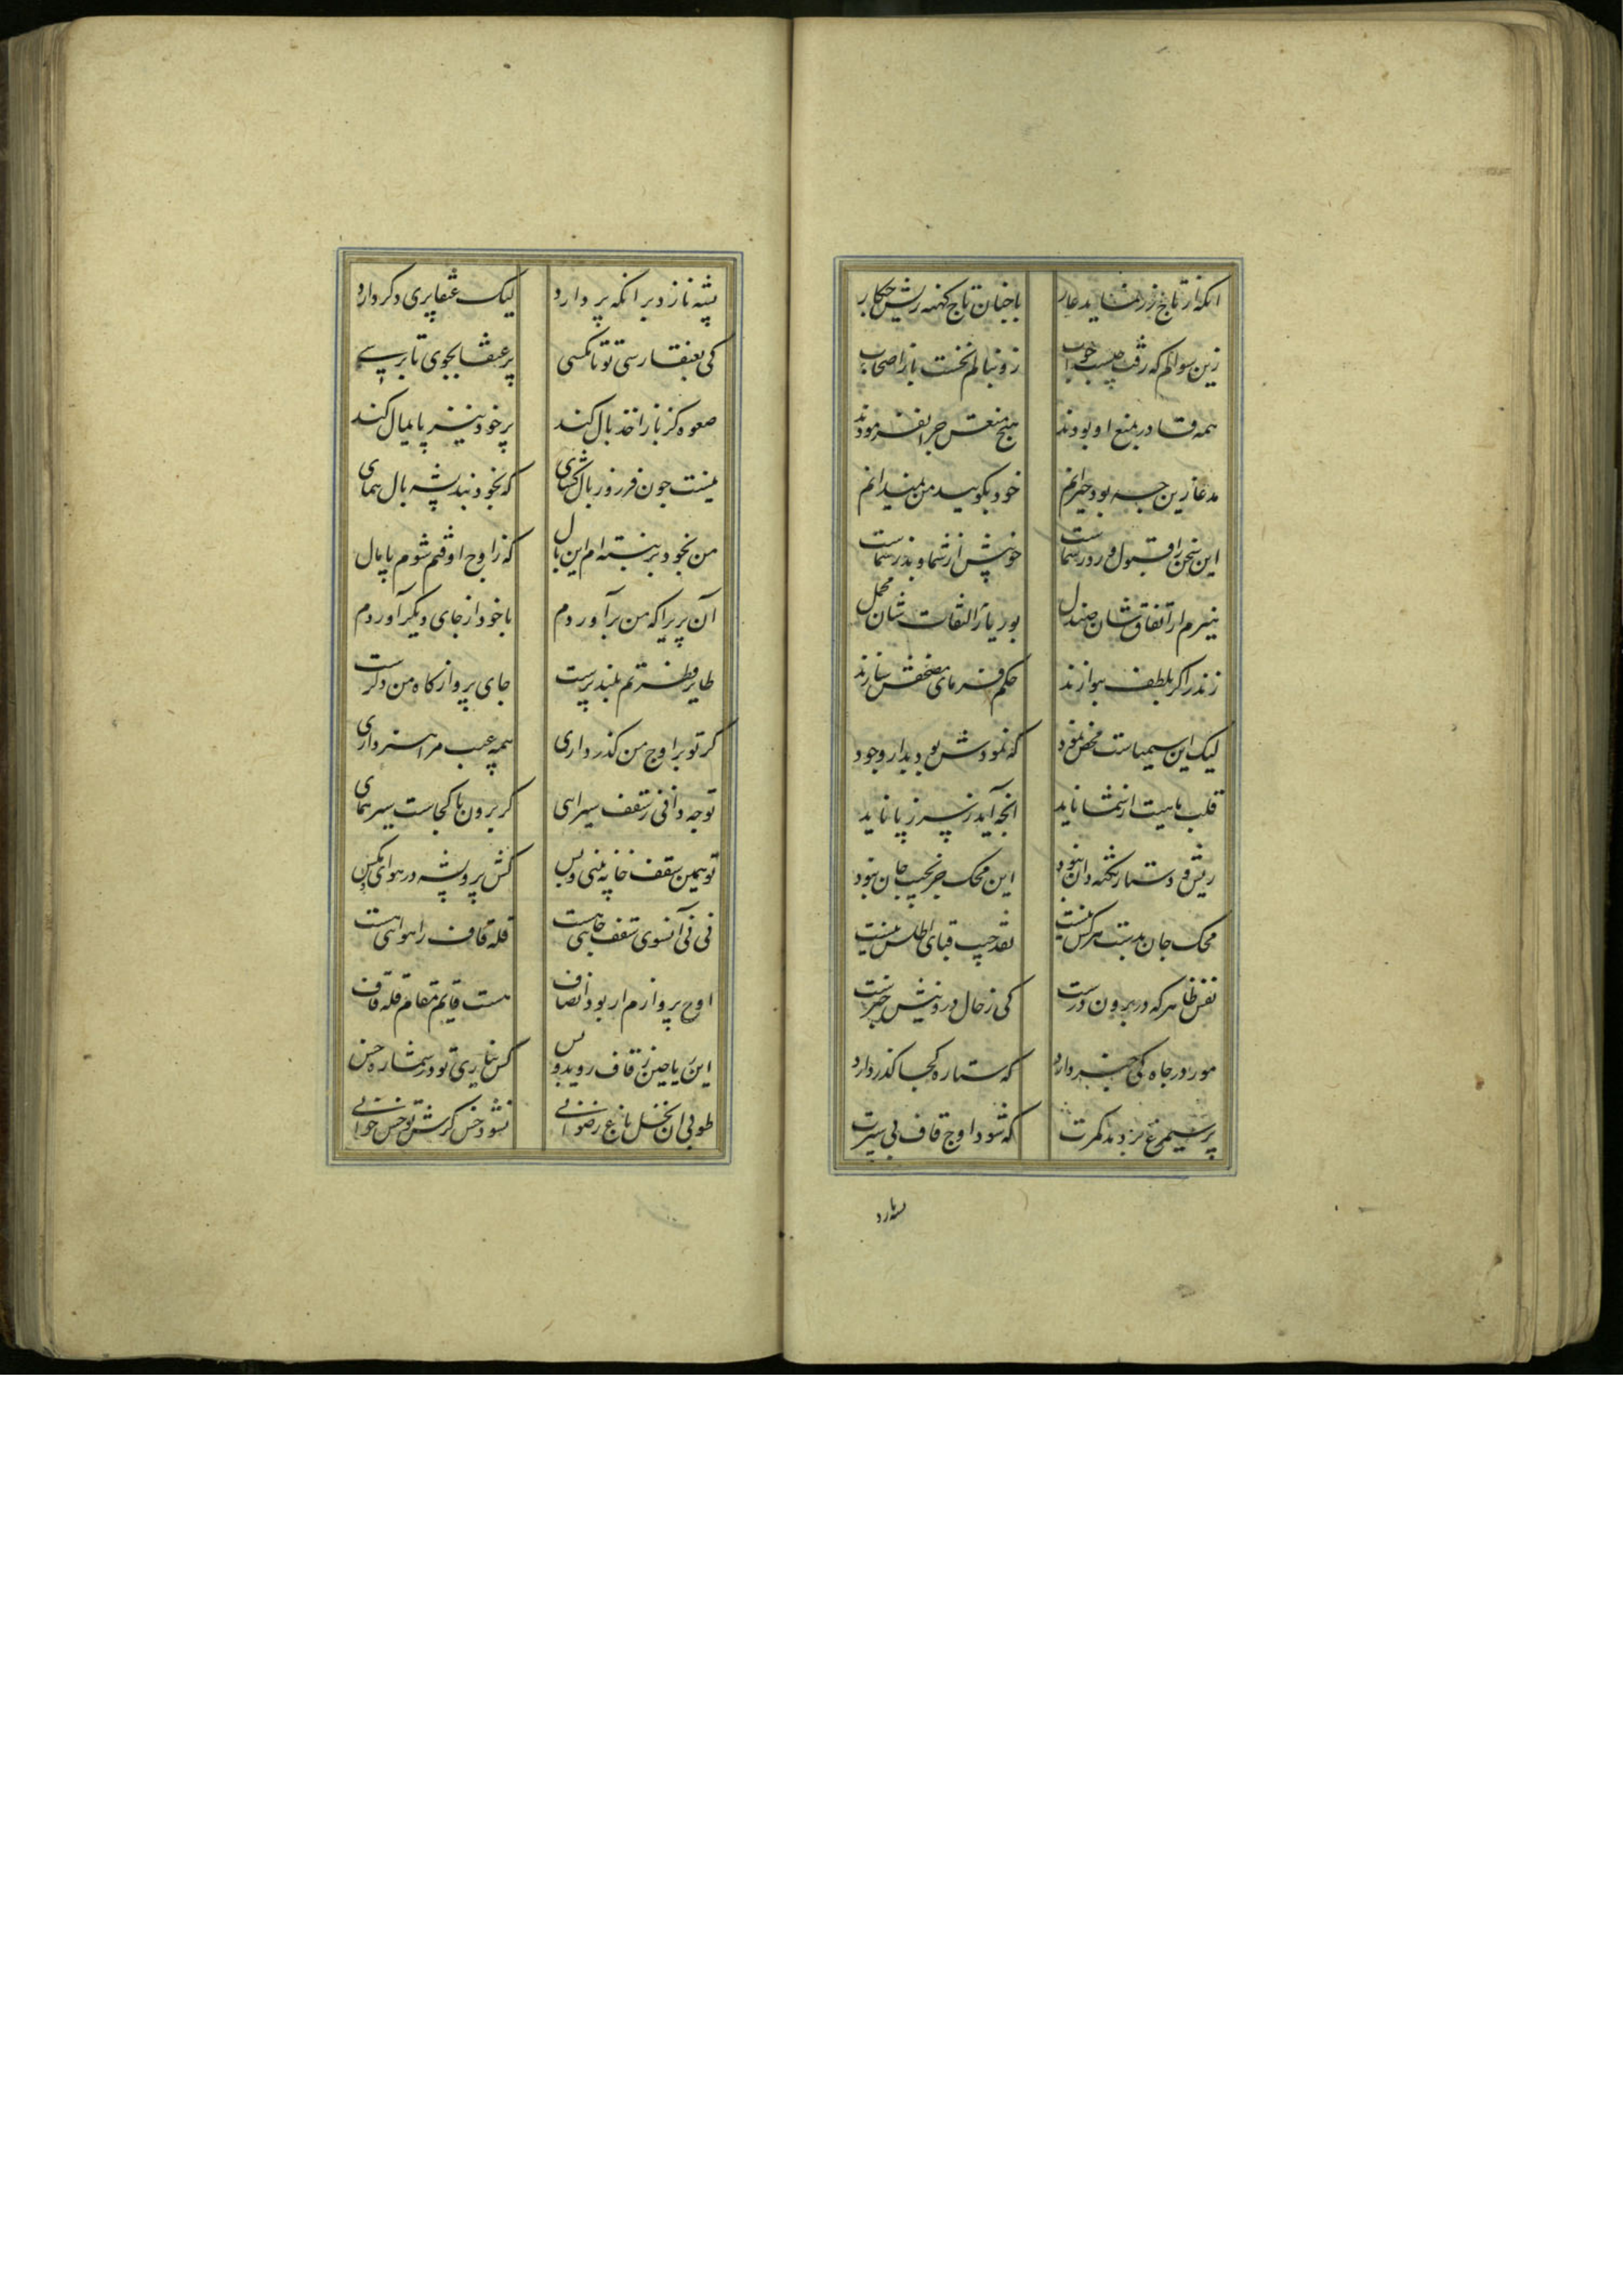 آنکه از تاج زرنماید عار با چنان تاج کهنه ریش چکار
زین سوالم که رفت چیست جواب زو نیالم نخست باز اصحاب
همه قادر بمنع او بودند هیچ منعش چرا نفرمودند
مدعا زین چه بود حیرانم خود بگویید من نمیدانم
این سخن را قبول و رد ز شماست خوبش از شما و بد ز شماست
نیرم از اتفاق شان صندل بوریا ز التفات شان محمل
زند را کر بلطف بنوازند حکم فرمای مصحفش سازند
لیک این سیمیاست محض نمود که نمودش بود بدار وجود
قلب ماهیت از شما ناید آنچه آید ز سر ز پا ناید
ریش و دستار نکته دان نبود این محک جز بجیب جان نبود
محک جان بدست هر کس نیست نقد جیب قبای اطلس نیست
نقش ظاهر که در برون درست کی ز حال درونیش خبرست
مور در چاه کی خبر دارد که ستاره کجا گذر دارد
پر سیمرغ بر دمد مگرت که شود اوج قاف پی سپرت
پشه نازد بر آنکه پر دارد لیک عنقا پری دگر دارد
کی بعنقا رسی تو تا مگسی پر عنقا بجوی تا برسی
صعوه کز باز اخذ بال کند پر خود نیز پایمال کند
نیست چون فر زور بال گشای که بخود بندد پشه بال همای
من بخود بر نبسته ام این بال که ز اوج اوفتم شوم پامال
آن پریرا که من بر آوردم با خود از جای دیگر آوردم
طایر فطرتم بلند پرست جای پرواز کاه من دگرست
گر تو بر اوج من گذر داری همه عیب مرا هنر داری
تو چه دانی ز سقف سیراهی گر برون تا کجاست سیر همای
تو همین سقف خانه بینی و بس کش پرد پشه در هوای مگس
نی نی آنسوی سقف جایی هست قله قاف را هوایی هست
اوج پروازم ار بود انصاف هست قایم مقام قله قاف
این ریاحین ز قاف روید و بس گر نیاری تو در شماره خس
طوبی آن نخل باغ رضوانی نشود خس گرش تو خس خوانی